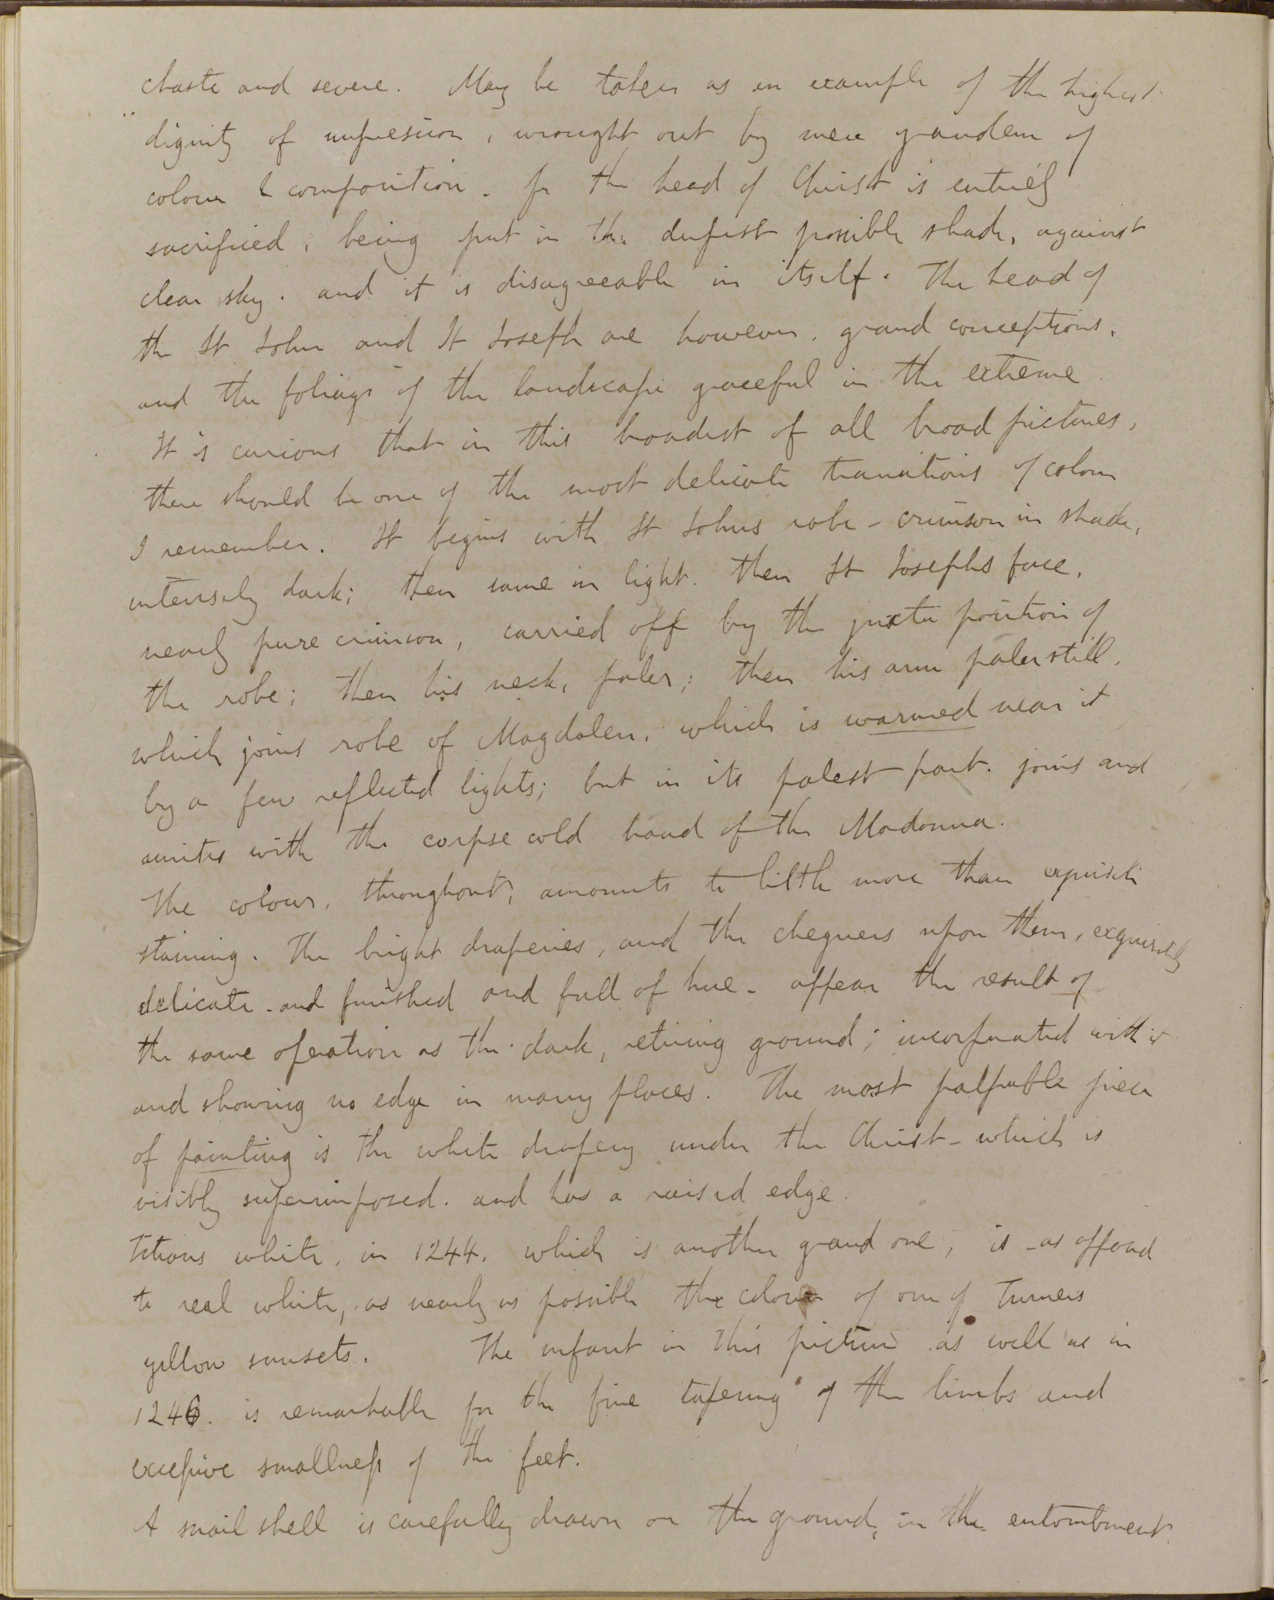 chaste and severe. May be taken as an example of the highest
dignity of impression, wrought out by mere grandeur of
colour & composition. for the head of Christ is entirely
sacrificed, being put in the deepest possible shade, against
clear sky. and it is disagreeable in itself. The head of
the St John and St Joseph are however, grand conceptions.
and the foliage of the landscape graceful in the extreme
It is curious that in this broadest of all broad pictures,
there should be one of the most delicate transitions of colour
I remember. It begins with St Johns robe - crimson in shade,
intensely dark; then same in light. then St Josephs face,
nearly pure crimson, carried off by the juxta position of
the robe; then his neck, paler; then his arm paler still.
which joins robe of Magdalen, which is warmed near it
by a few reflected lights; but in its palest part. joins and
unites with the corpse cold hand of the Madonna.
The colour, throughout, amounts to little more than exquisite
staining. The bright draperies, and the chequers upon them, exquisitely
delicate - and finished and full of hue - appear the result of
the same operation as the dark, retiring ground; incorporated with it
and showing no edge in many places. The most palpable piece
of painting is the white drapery under the Christ - which is
visibly superimposed. and has a raised edge.
Titians white, in 1244. which is another grand one, is - as opposed
to real white, as nearly as possible the colour of one of Turners
yellow sunsets. The infant in this picture as well as in
1246. is remarkable for the fine tapering of the limbs and
excessive smallness of the feet.
A snail shell is carefully drawn on the ground, in the entombment.